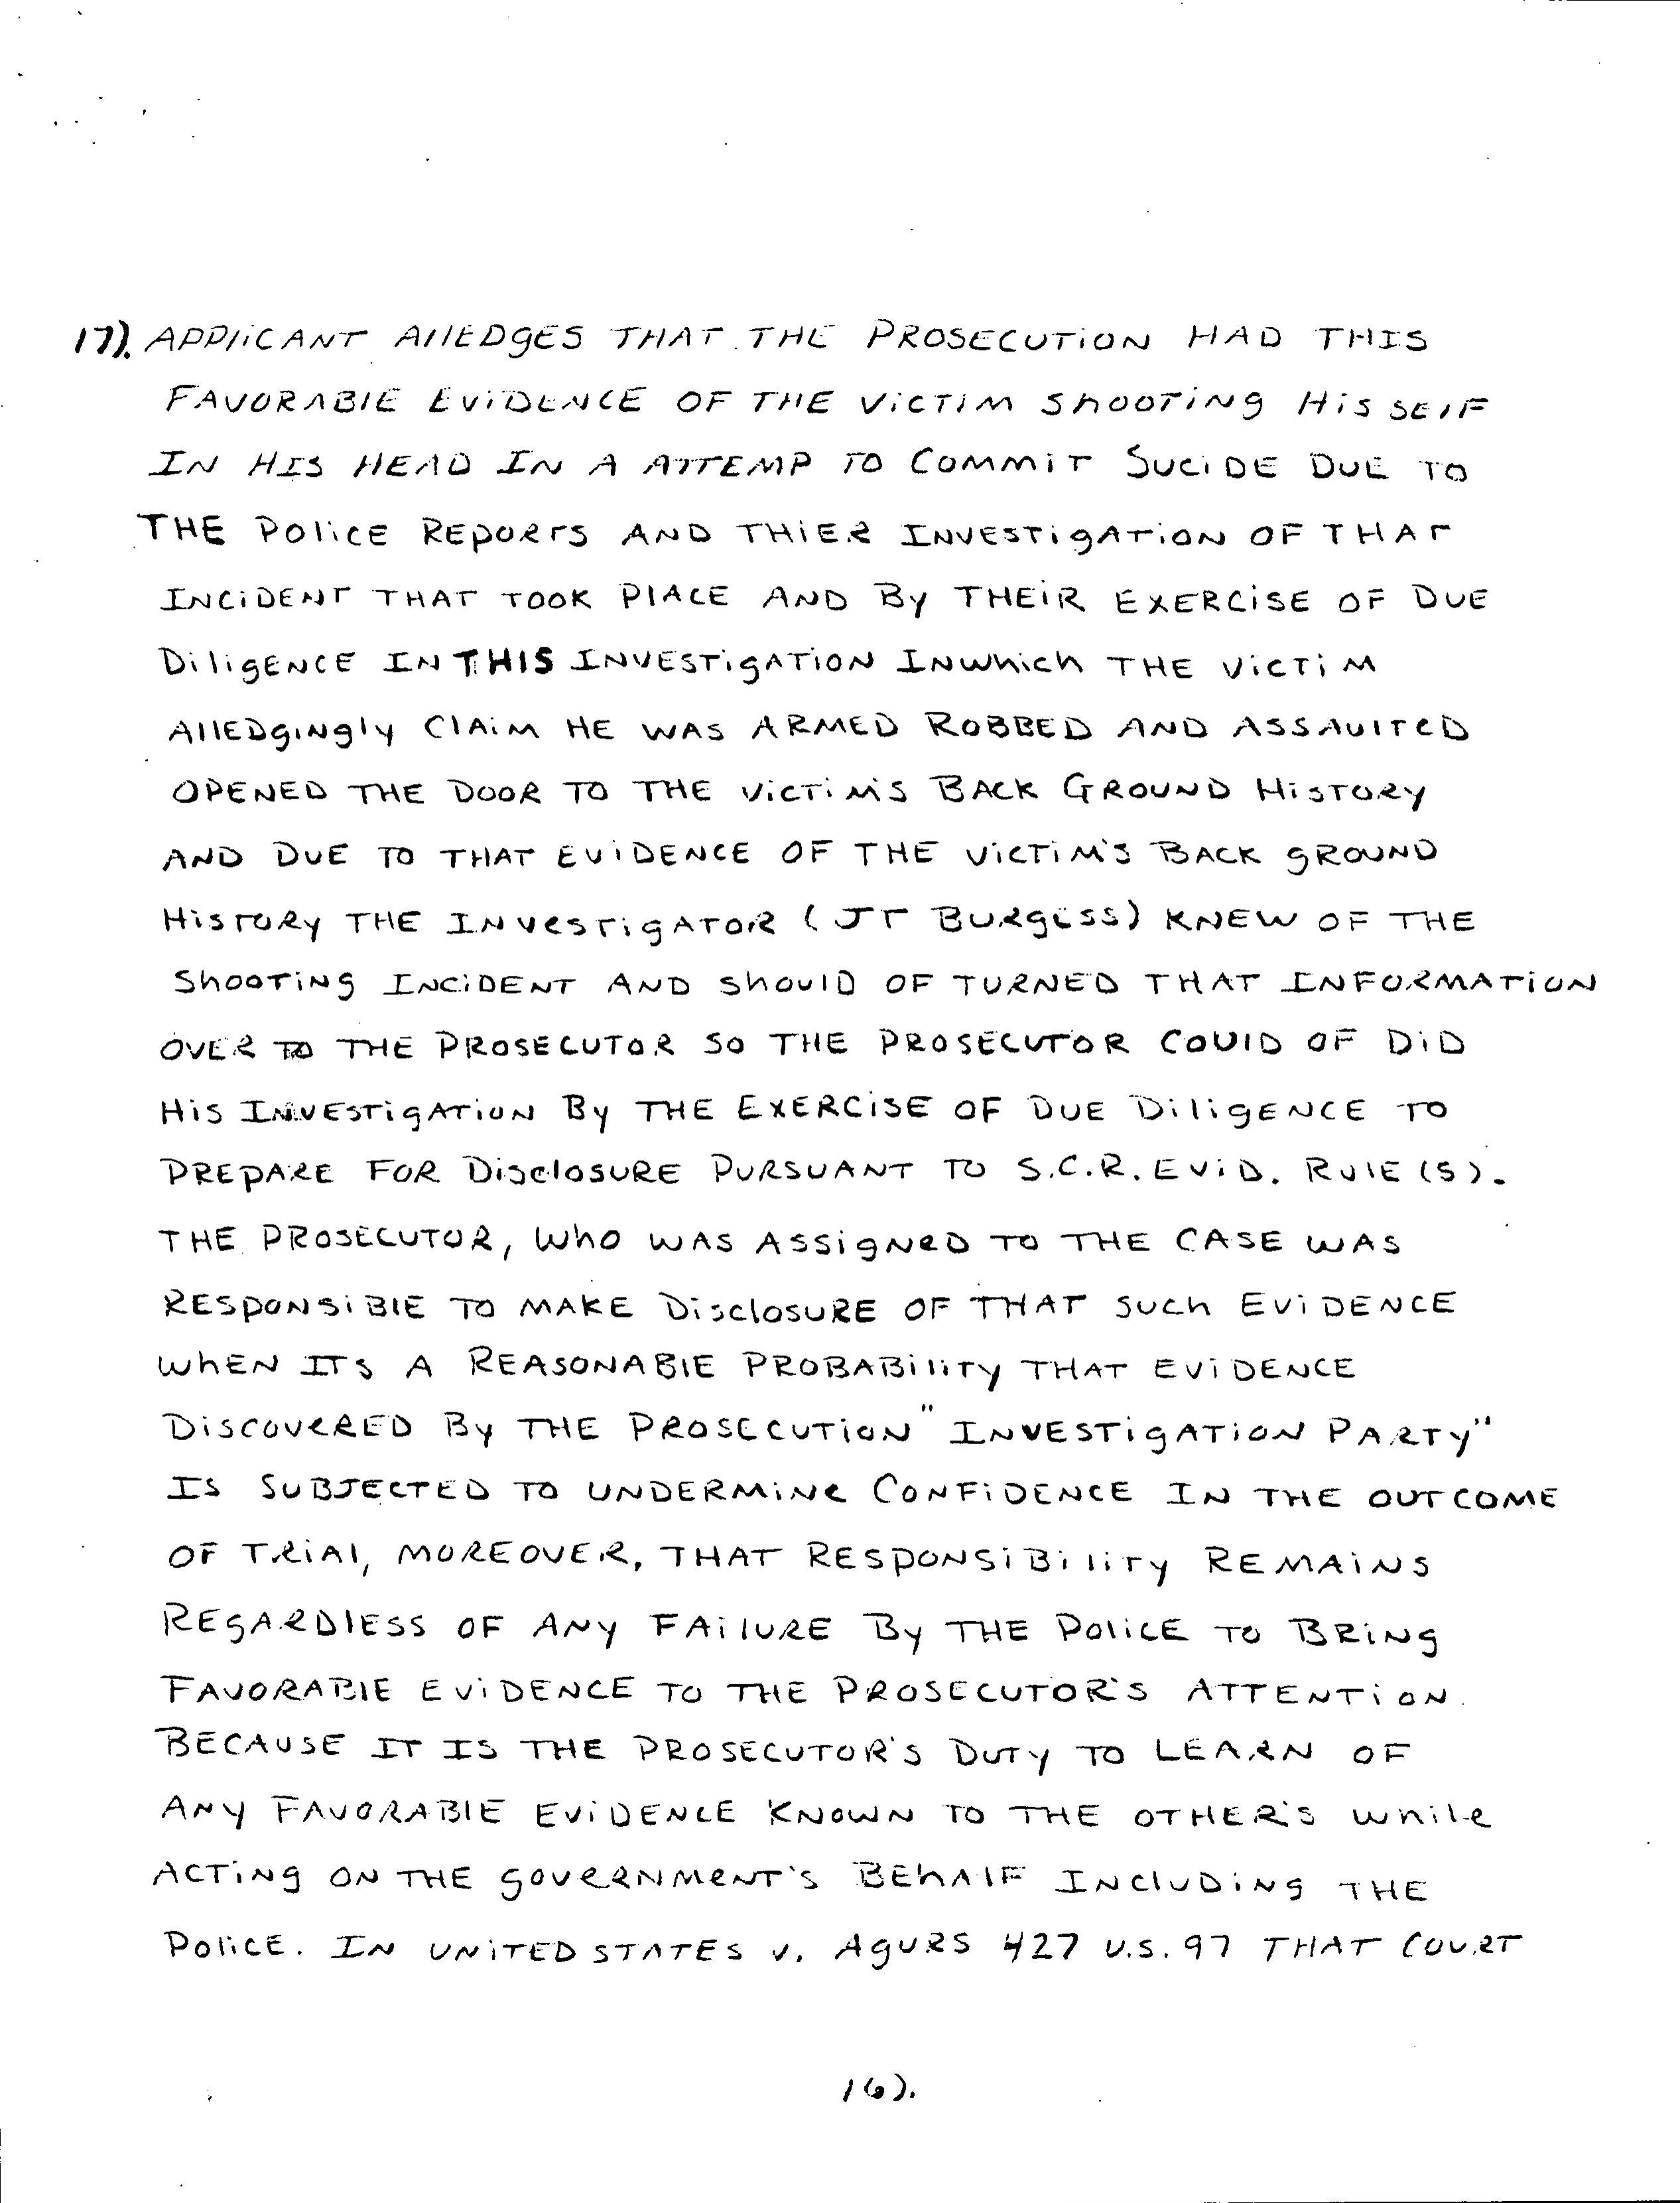 17). APPliCANT AllEDgES THAT THE PROSECUTiON HAD THIS
FAVORABlE EViDENCE OF THE ViCTiM ShOOTiNg HiS SElF
IN HIS HEAD IN A ATTEMP TO COMMiT SUCiDE DUE TO
THE POliCE REpORTS AND THiER INVESTigATiON OF THAT
INCiDENT THAT TOOK PlACE AND By THEiR EXERCiSE OF DUE
DiligENCE IN THIS INVESTigATiON INWhich THE ViCTiM
AllEDgiNgly ClAiM HE WAS ARMED ROBBED AND ASSAUlTED
OPENED THE DOOR TO THE ViCTiM'S BACK GROUND HiSTORy
AND DUE TO THAT EViDENCE OF THE ViCTiM'S BACK gROUND
HiSTORy THE INVESTigATOR (JT BURgESS) KNEW OF THE
ShOOTiNg INCiDENT AND ShOUlD OF TURNED THAT INFORMATiON
OVER TO THE PROSECUTOR SO THE PROSECUTOR COUlD OF DiD
HiS INVESTigATiON By THE EXERCiSE OF DUE DiligENCE TO
PREPARE FOR DisclOSURE PURSUANT TO S.C.R. EViD. RUlE (5).
THE PROSECUTOR, WhO WAS ASSigNeD TO THE CASE WAS
RESpONSiBlE TO MAKE DisclOSURE OF THAT SUCh EViDENCE
WhEN ITS A REASONABlE PROBABiliTy THAT EViDENCE
DiSCOVeRED By THE PROSECUTiON "INVESTigATiON PARTy"
IS SUBJECTED TO UNDERMiNe CONFiDENCE IN THE OUTCOME
OF TRiAl, MOREOVER, THAT RESpONSiBiliTy REMAiNS
REgARDlESS OF ANy FAilURE By THE POliCE TO BRiNg
FAVORABlE EViDENCE TO THE PROSECUTOR'S ATTENTiON.
BECAUSE IT IS THE PROSECUTOR'S DUTy TO LEARN OF
ANy FAVORABlE EViDENCE KNOWN TO THE OTHER'S While
ACTiNg ON THE gOVeRNMeNT'S BEhAlF INClUDiNg THE
POliCE. IN UNiTED STATES v. AgURS 427 U.S. 97 THAT COURT
16).